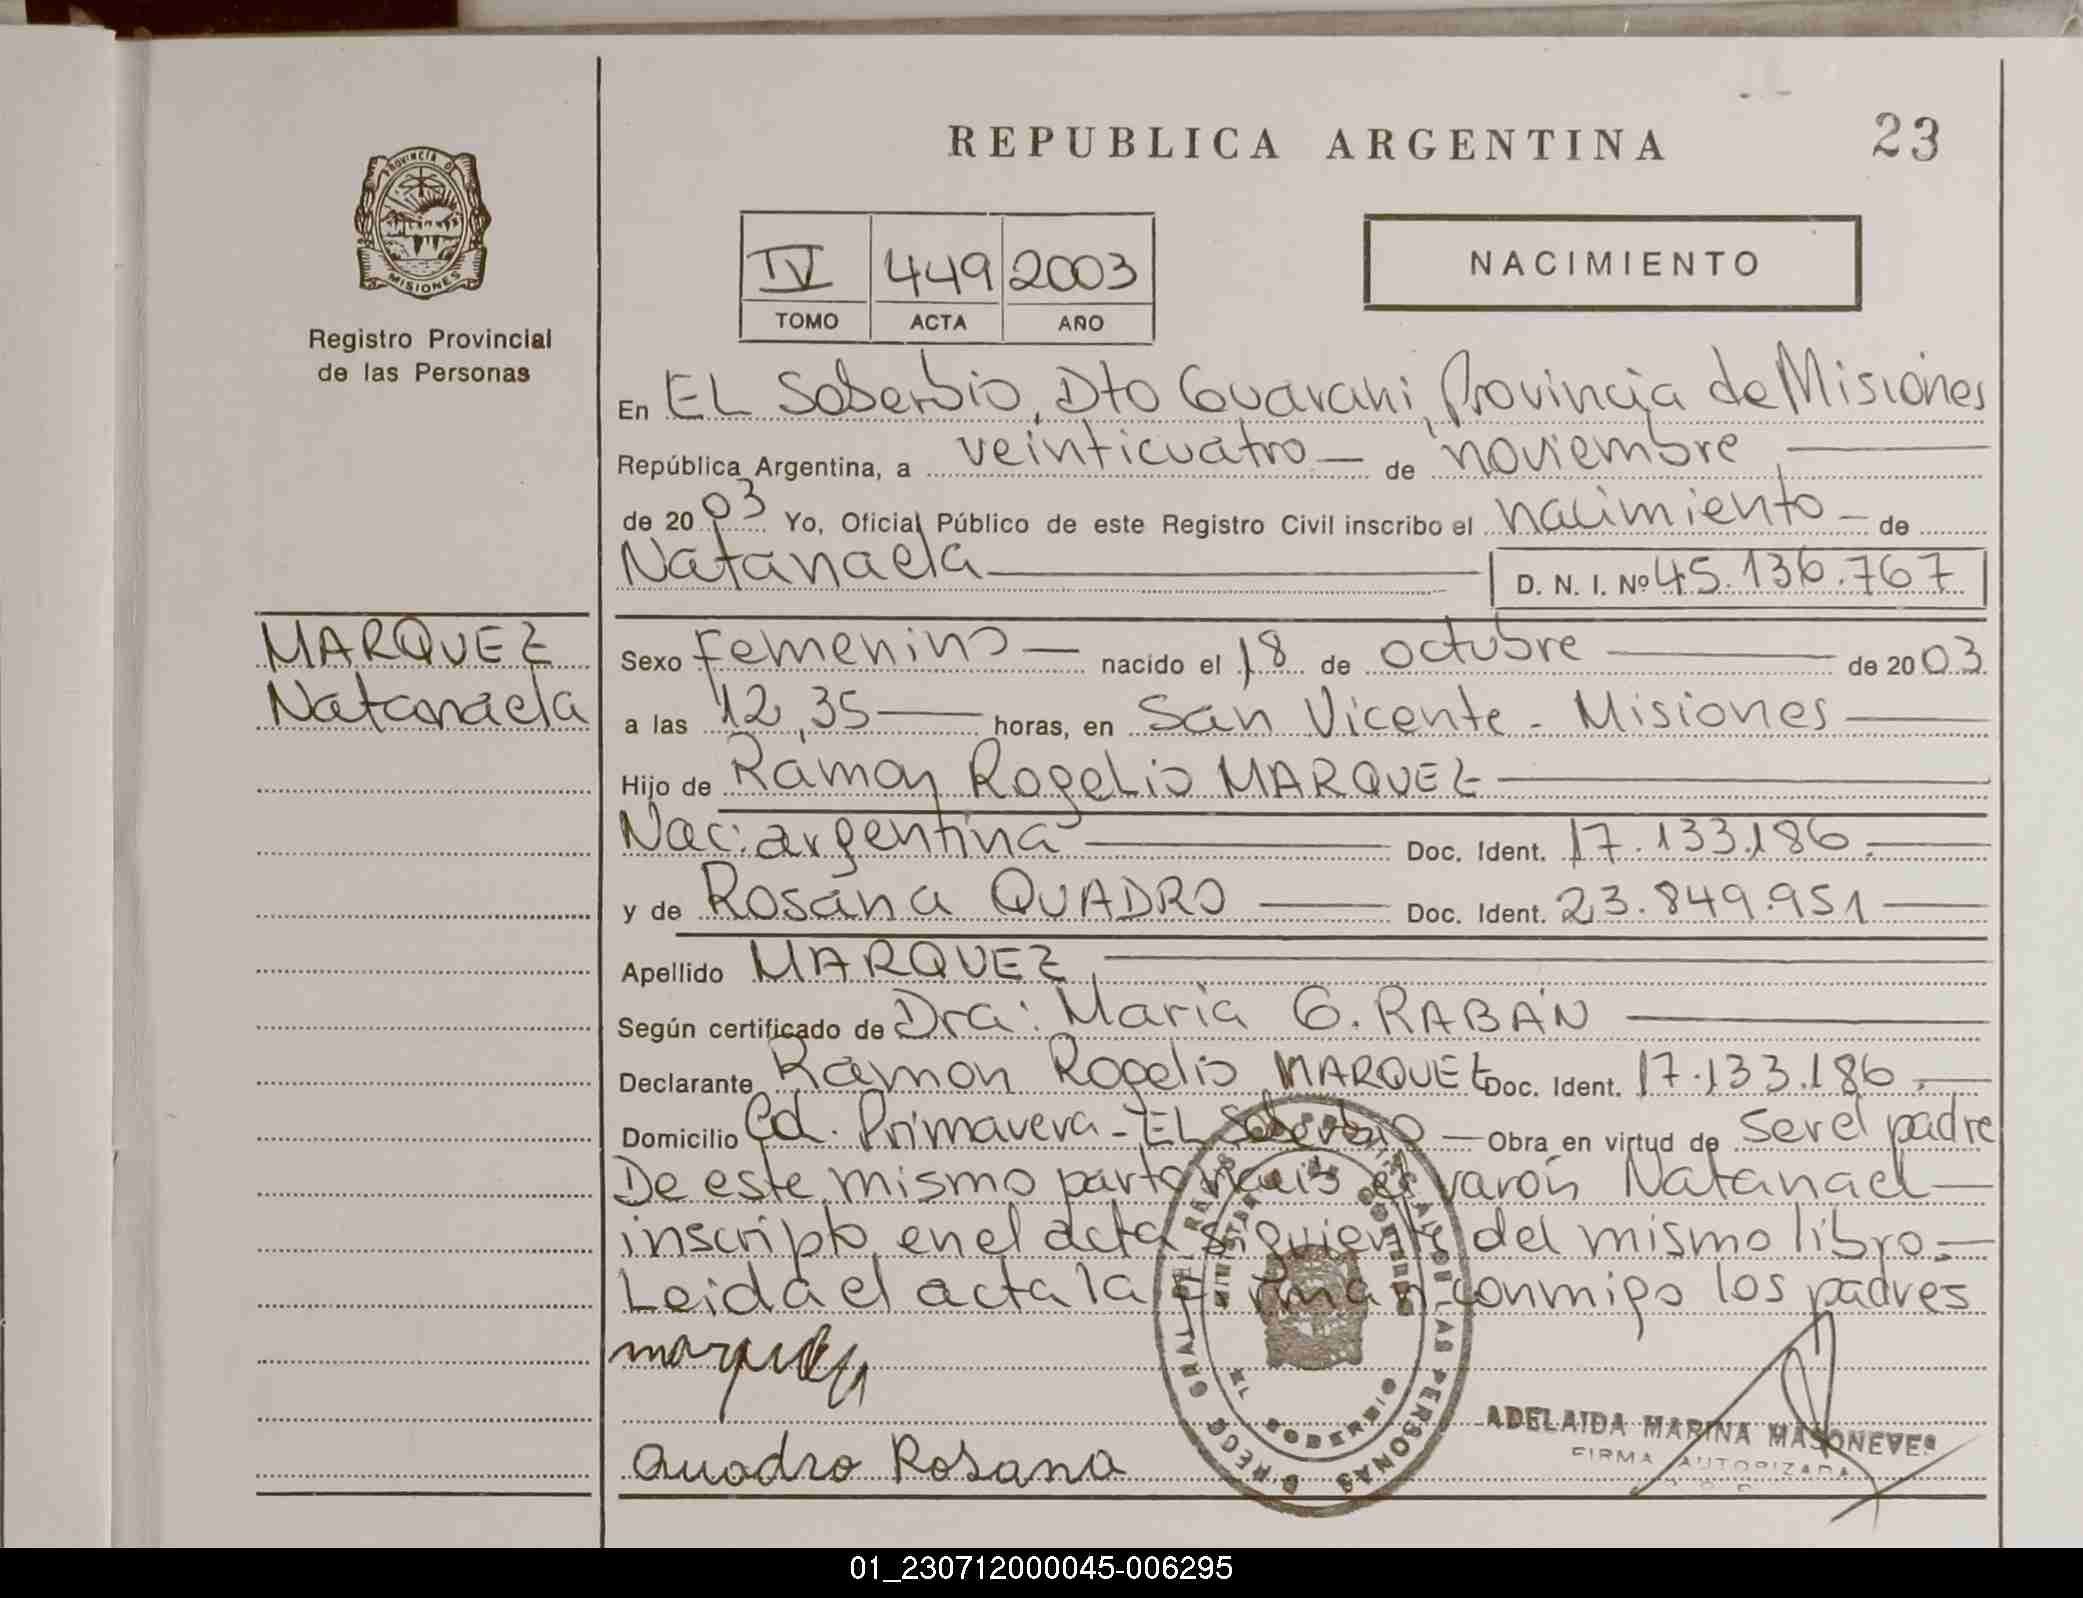 REPUBLICA ARGENTINA
23
PROVINCIA DE
MISIONES
Registro Provincial
de las Personas
IV 449 2003
TOMO ACTA AÑO
NACIMIENTO
En EL Soberbio, Dto Guarani, Provincia de Misiones
República Argentina, a veinticuatro — de noviembre
de 2003 Yo, Oficial Público de este Registro Civil inscribo el nacimiento — de
Natanaela
D. N. I. Nº 45.136.767
MARQUEZ
Natanaela
Sexo femenino — nacido el 18 de octubre — de 2003
a las 12,35 — horas, en San Vicente - Misiones
Hijo de Ramon Rogelio MARQUEZ
Nac: argentina — Doc. Ident. 17.133.186.
y de Rosana QUADRO — Doc. Ident. 23.849.951
Apellido MARQUEZ
Según certificado de Dra: Maria G. RABAN
Declarante Ramon Rogelio MARQUEZ Doc. Ident. 17.133.186.
Domicilio Cd. Primavera - EL Soberbio — Obra en virtud de ser el padre
De este mismo parto nacio el varón Natanael —
inscripto en el acta siguiente del mismo libro.—
Leida el acta la firman conmigo los padres
marquez
Quadro Rosana
EL SOBERBIO
ADELAIDA MARINA
FIRMA AUTORIZADA
01_230712000045-006295